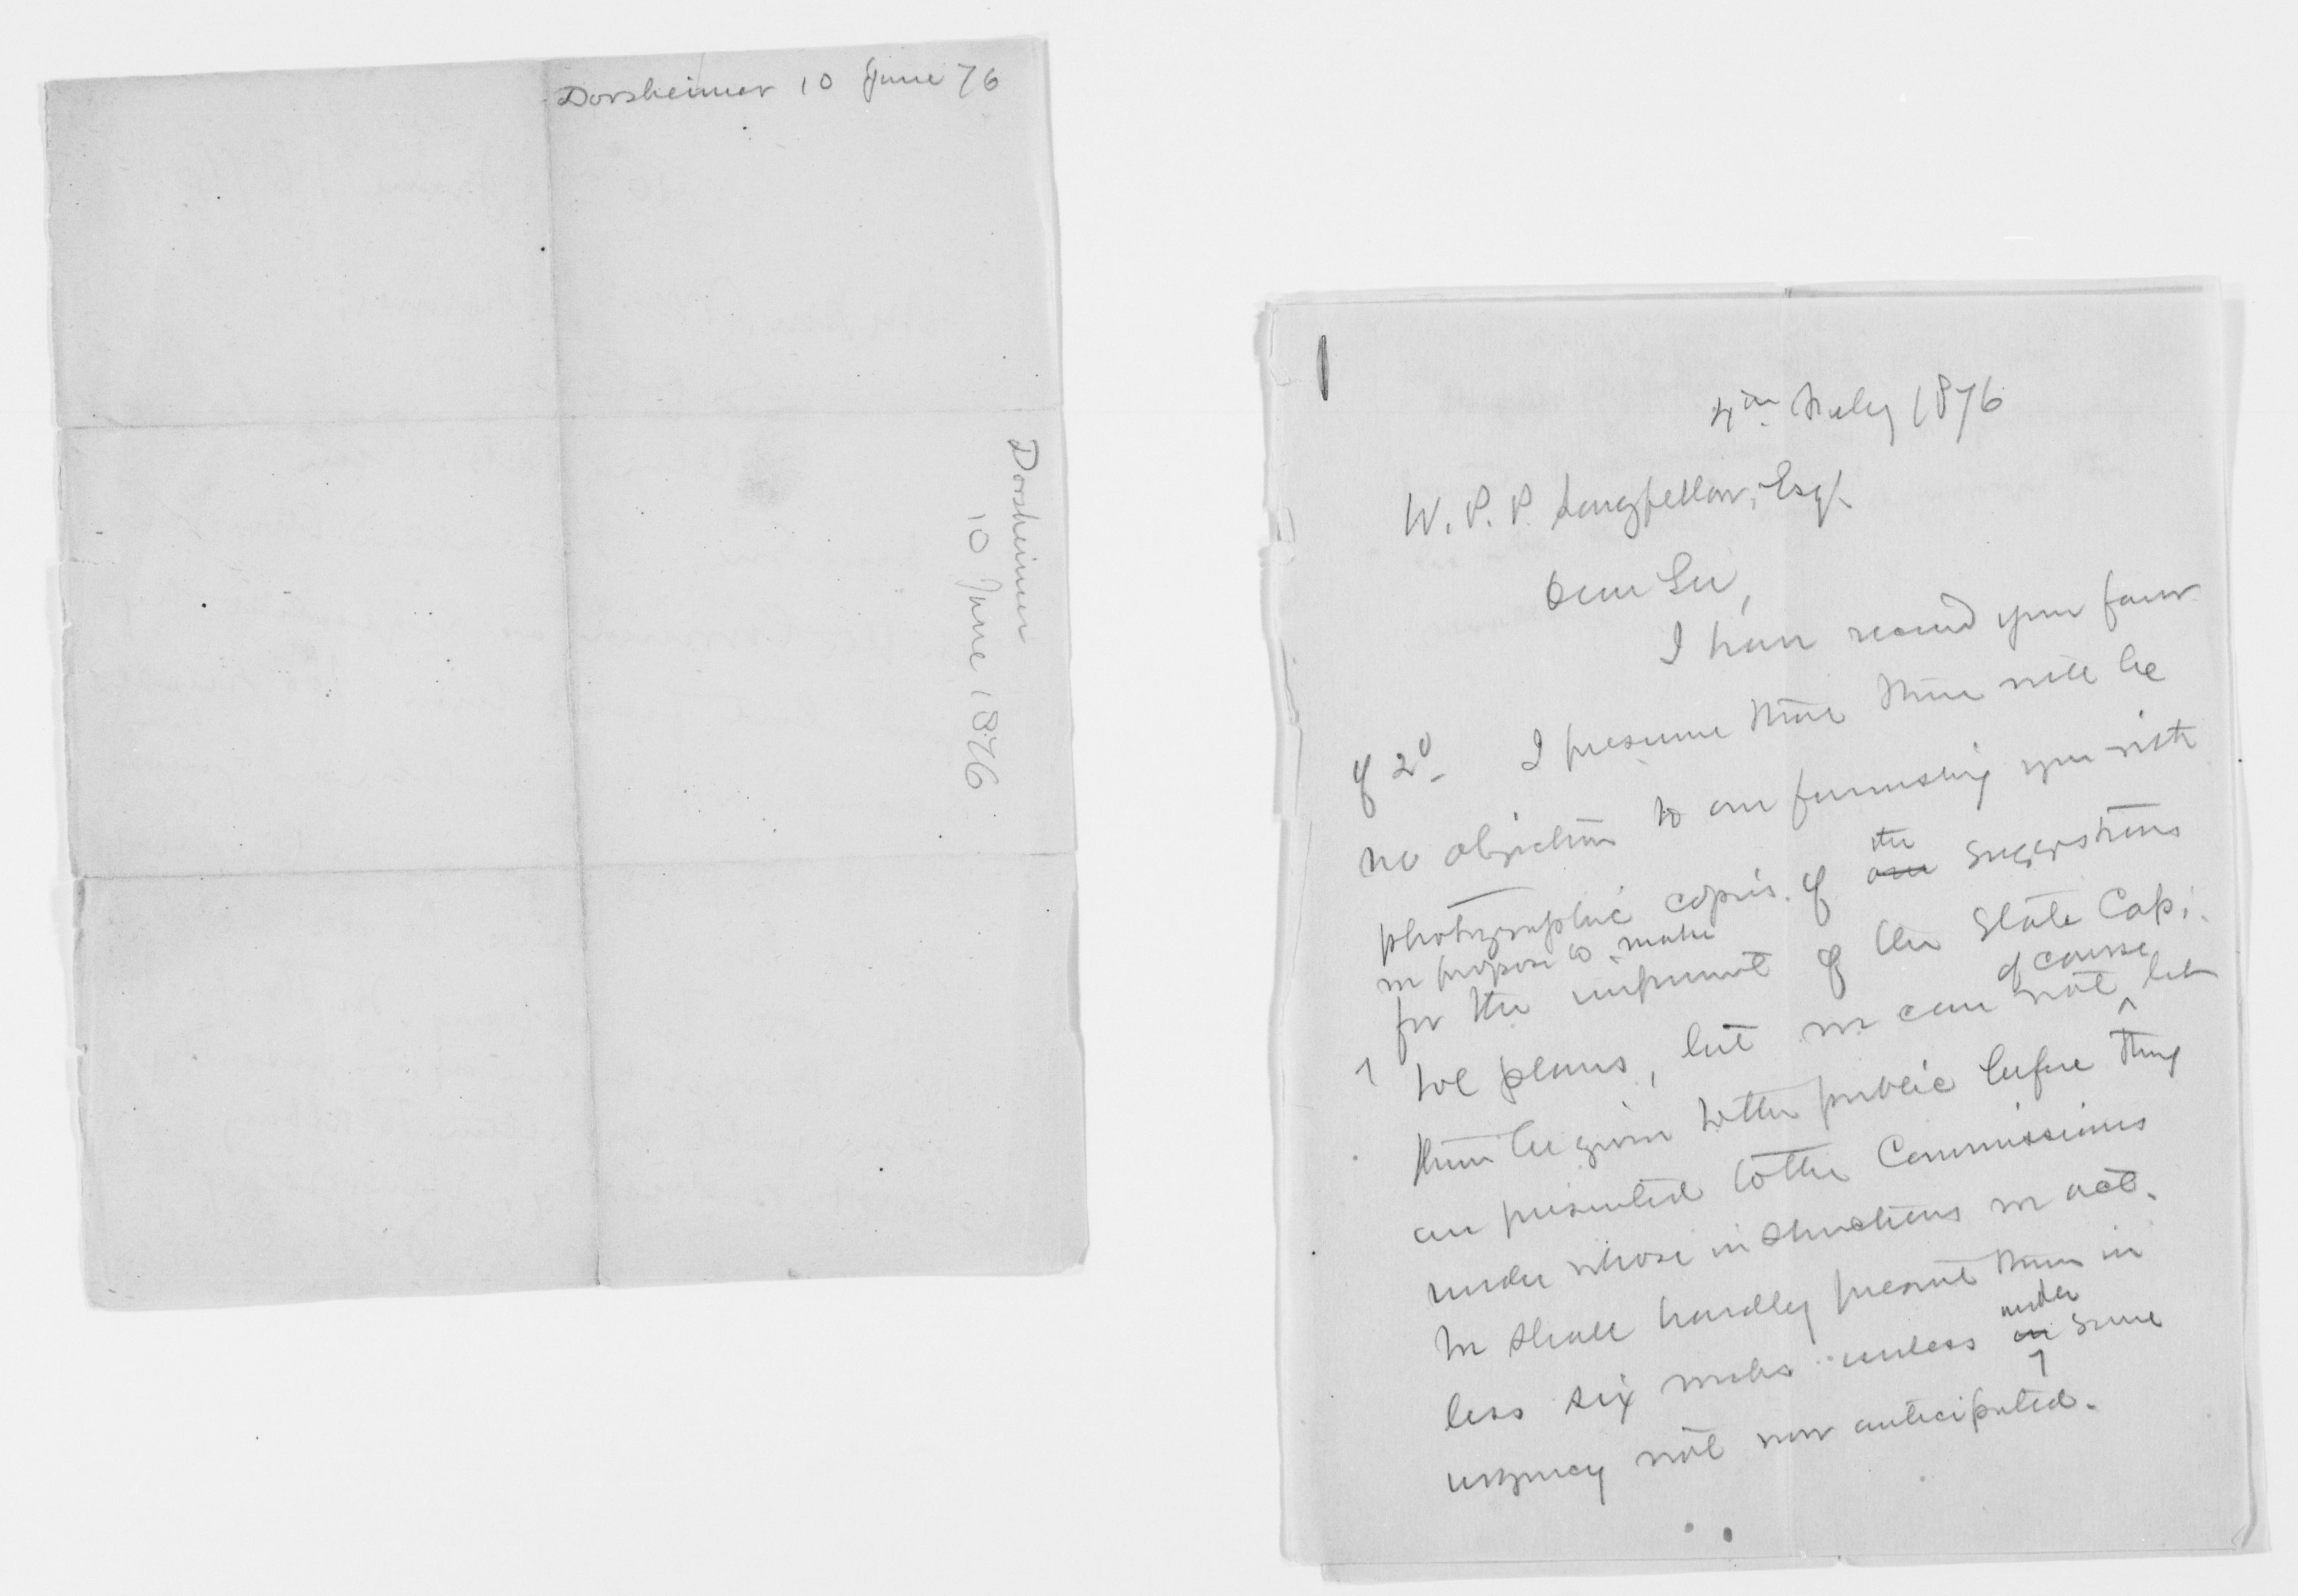 Dorsheimer 10 June 76
Dorsheimer
10 June 1876
4th July 1876
W. P. P. Longfellow, Esq.
Dear Sir,
I have received your favor
of 2d I presume that there will be
no objection to our furnishing you with
photographic copies of our the suggestions
we propose to make
for the improvement of the State Capi-
tol plans, but we can not of course let
them be given to the public before they
are presented to the Commissioners
under whose instructions we act.
We shall hardly present them in
less six weeks unless on under some
urgency not now anticipated.